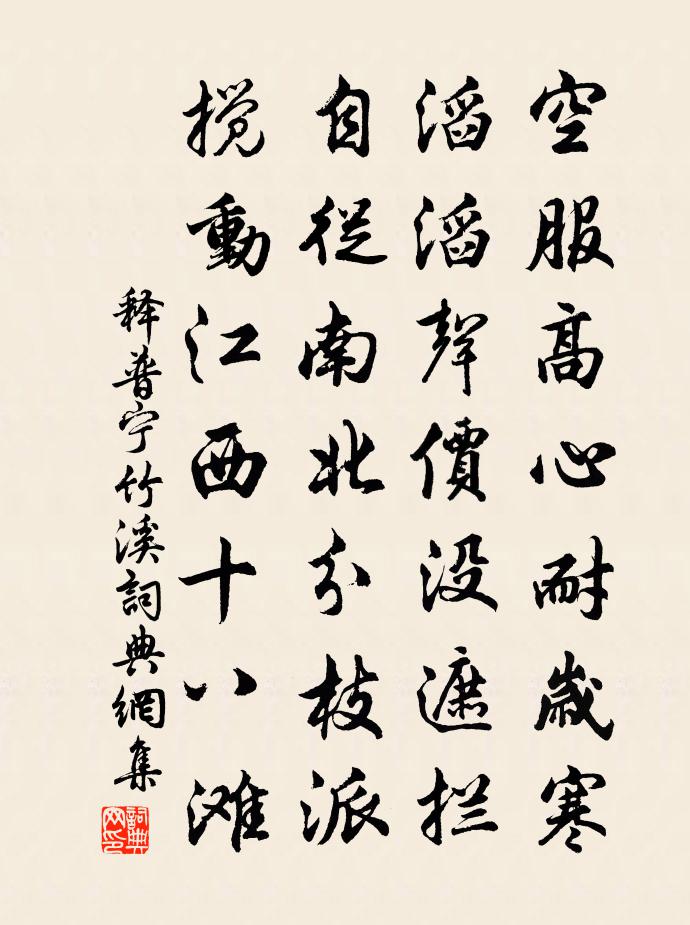 空服高心耐歲寒
滔滔聲價没遮拦
自從南北分枝派
搅動江西十八滩
释普宁竹溪詞典網集
詞典网印